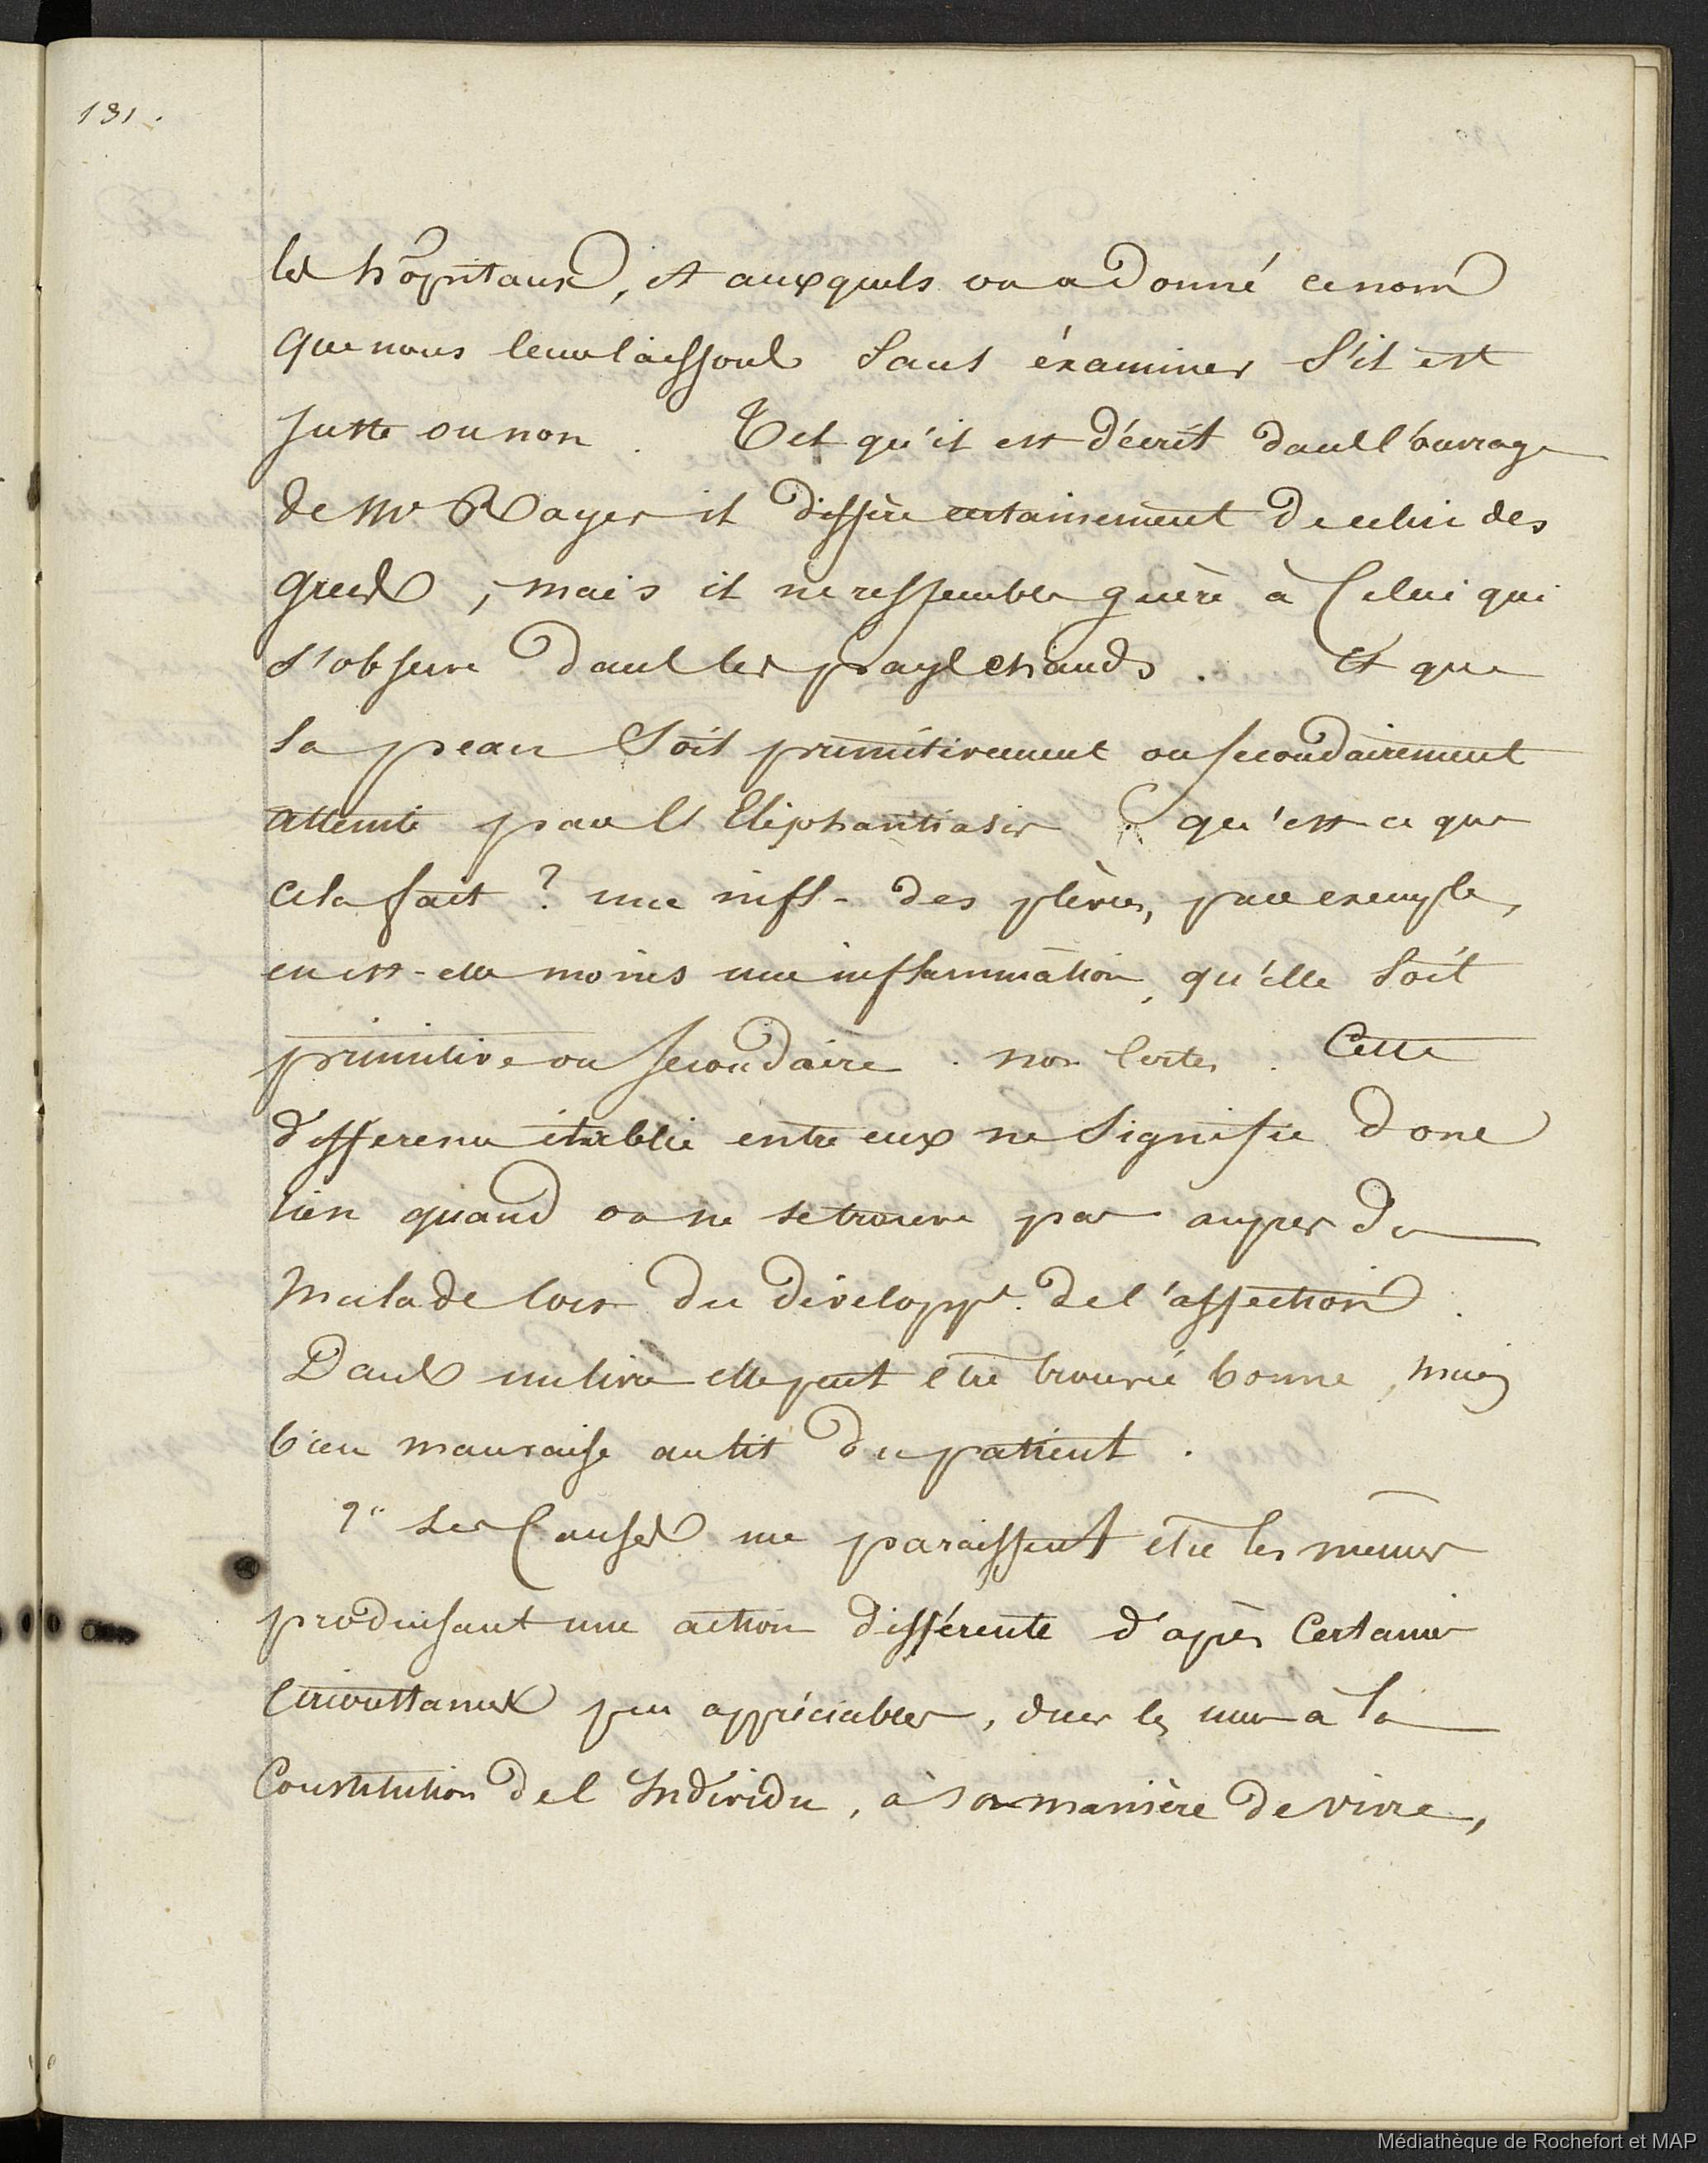 131.
les hôpitaux, et auxquels on a donné ce nom
que nous leur laissons sans éxaminer s'il est
juste ou non. Tel qu'il est décrit dans l'ouvrage
de Mr Rayer il diffère certainement de celui des
grecs, mais il ne ressemble guère à Celui qui
s'observe dans les pays chauds. Et que
la peau soit primitivement ou secondairement
atteinte par l'Elephantiasis qu'est-ce que
cela fait ? une infl- des plèvres, par exemple,
en est-elle moins une inflammation, qu'elle soit
primitive ou secondaire. non Certes. Cette
difference établie entre eux ne signifie donc
rien quand on ne se trouve pas auprès du
Malade lors du développt. de l'affection.
Dans un livre elle peut être trouvée bonne, mais
bien mauvaise au lit du patient.
2° Les Causes me paraissent être les mêmes
produisant une action différente d'après Certaines
Circonstances peu appréciables, dues les unes à la
Constitution de l'Individu, à sa manière de vivre,
Médiathèque de Rochefort et MAP